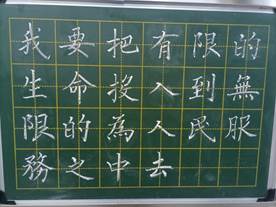 我要把有限的
生命投入到無
限的為人民服
務之中去